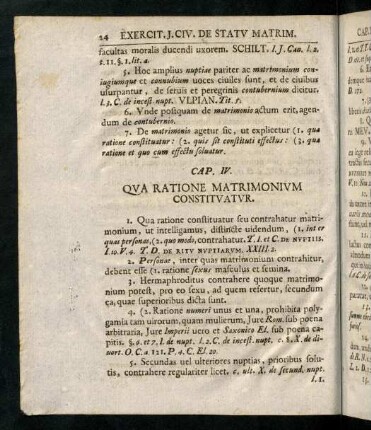 24 EXERCIT. J. CIV. DE STATV MATRIM.
facultas moralis ducendi uxorem. SCHILT. I. J. Can. l. 2.
t. 11. §. 1. lit. a.
5. Hoc amplius nuptiae pariter ac matrimonium con-
iugiumque et connubium voces ciuiles sunt, et de ciuibus
usurpantur, de seruis et peregrinis contubernium dicitur.
l. 3. C. de incest. nupt. VLPIAN. Tit. 5.
6. Vnde postquam de matrimonio actum erit, agen-
dum de contubernio.
7. De matrimonio agetur sic, ut explicetur (1. qua
ratione constituatur: (2. quis sit constituti effectus: (3. qua
ratione et quo cum effectu soluatur.
CAP. IV.
QVA RATIONE MATRIMONIVM
CONSTITVATVR.
1. Qua ratione constituatur seu contrahatur matri-
monium, ut intelligamus, distincte uidendum, (1. inter
quas personas, (2. quo modo, contrahatur. T. I. et C. DE NVPTIIS.
I. 10. V. 4. T. D. DE RITV NVPTIARVM. XXIII. 2.
2. Personae, inter quas matrimonium contrahitur,
debent esse (1. ratione sexus masculus et femina.
3. Hermaphroditus contrahere quoque matrimo-
nium potest, pro eo sexu, ad quem refertur, secundum
ea, quae superioribus dicta sunt.
4. (2. Ratione numeri unus et una, prohibita poly-
gamia tam uirorum, quam mulierum, Jure Rom. sub poena
arbitraria, Jure Imperii uero et Saxonico El. sub poena ca-
pitis. §. 6. et 7. I. de nupt. l. 2. C. de incest. nupt. c. 8. X. de di-
uort. O. C. a 121. P. 4. C. El. 20.
5. Secundas uel ulteriores nuptias, prioribus solu-
tis, contrahere regulariter licet. c. ult. X. de secund. nupt.
l. 1.